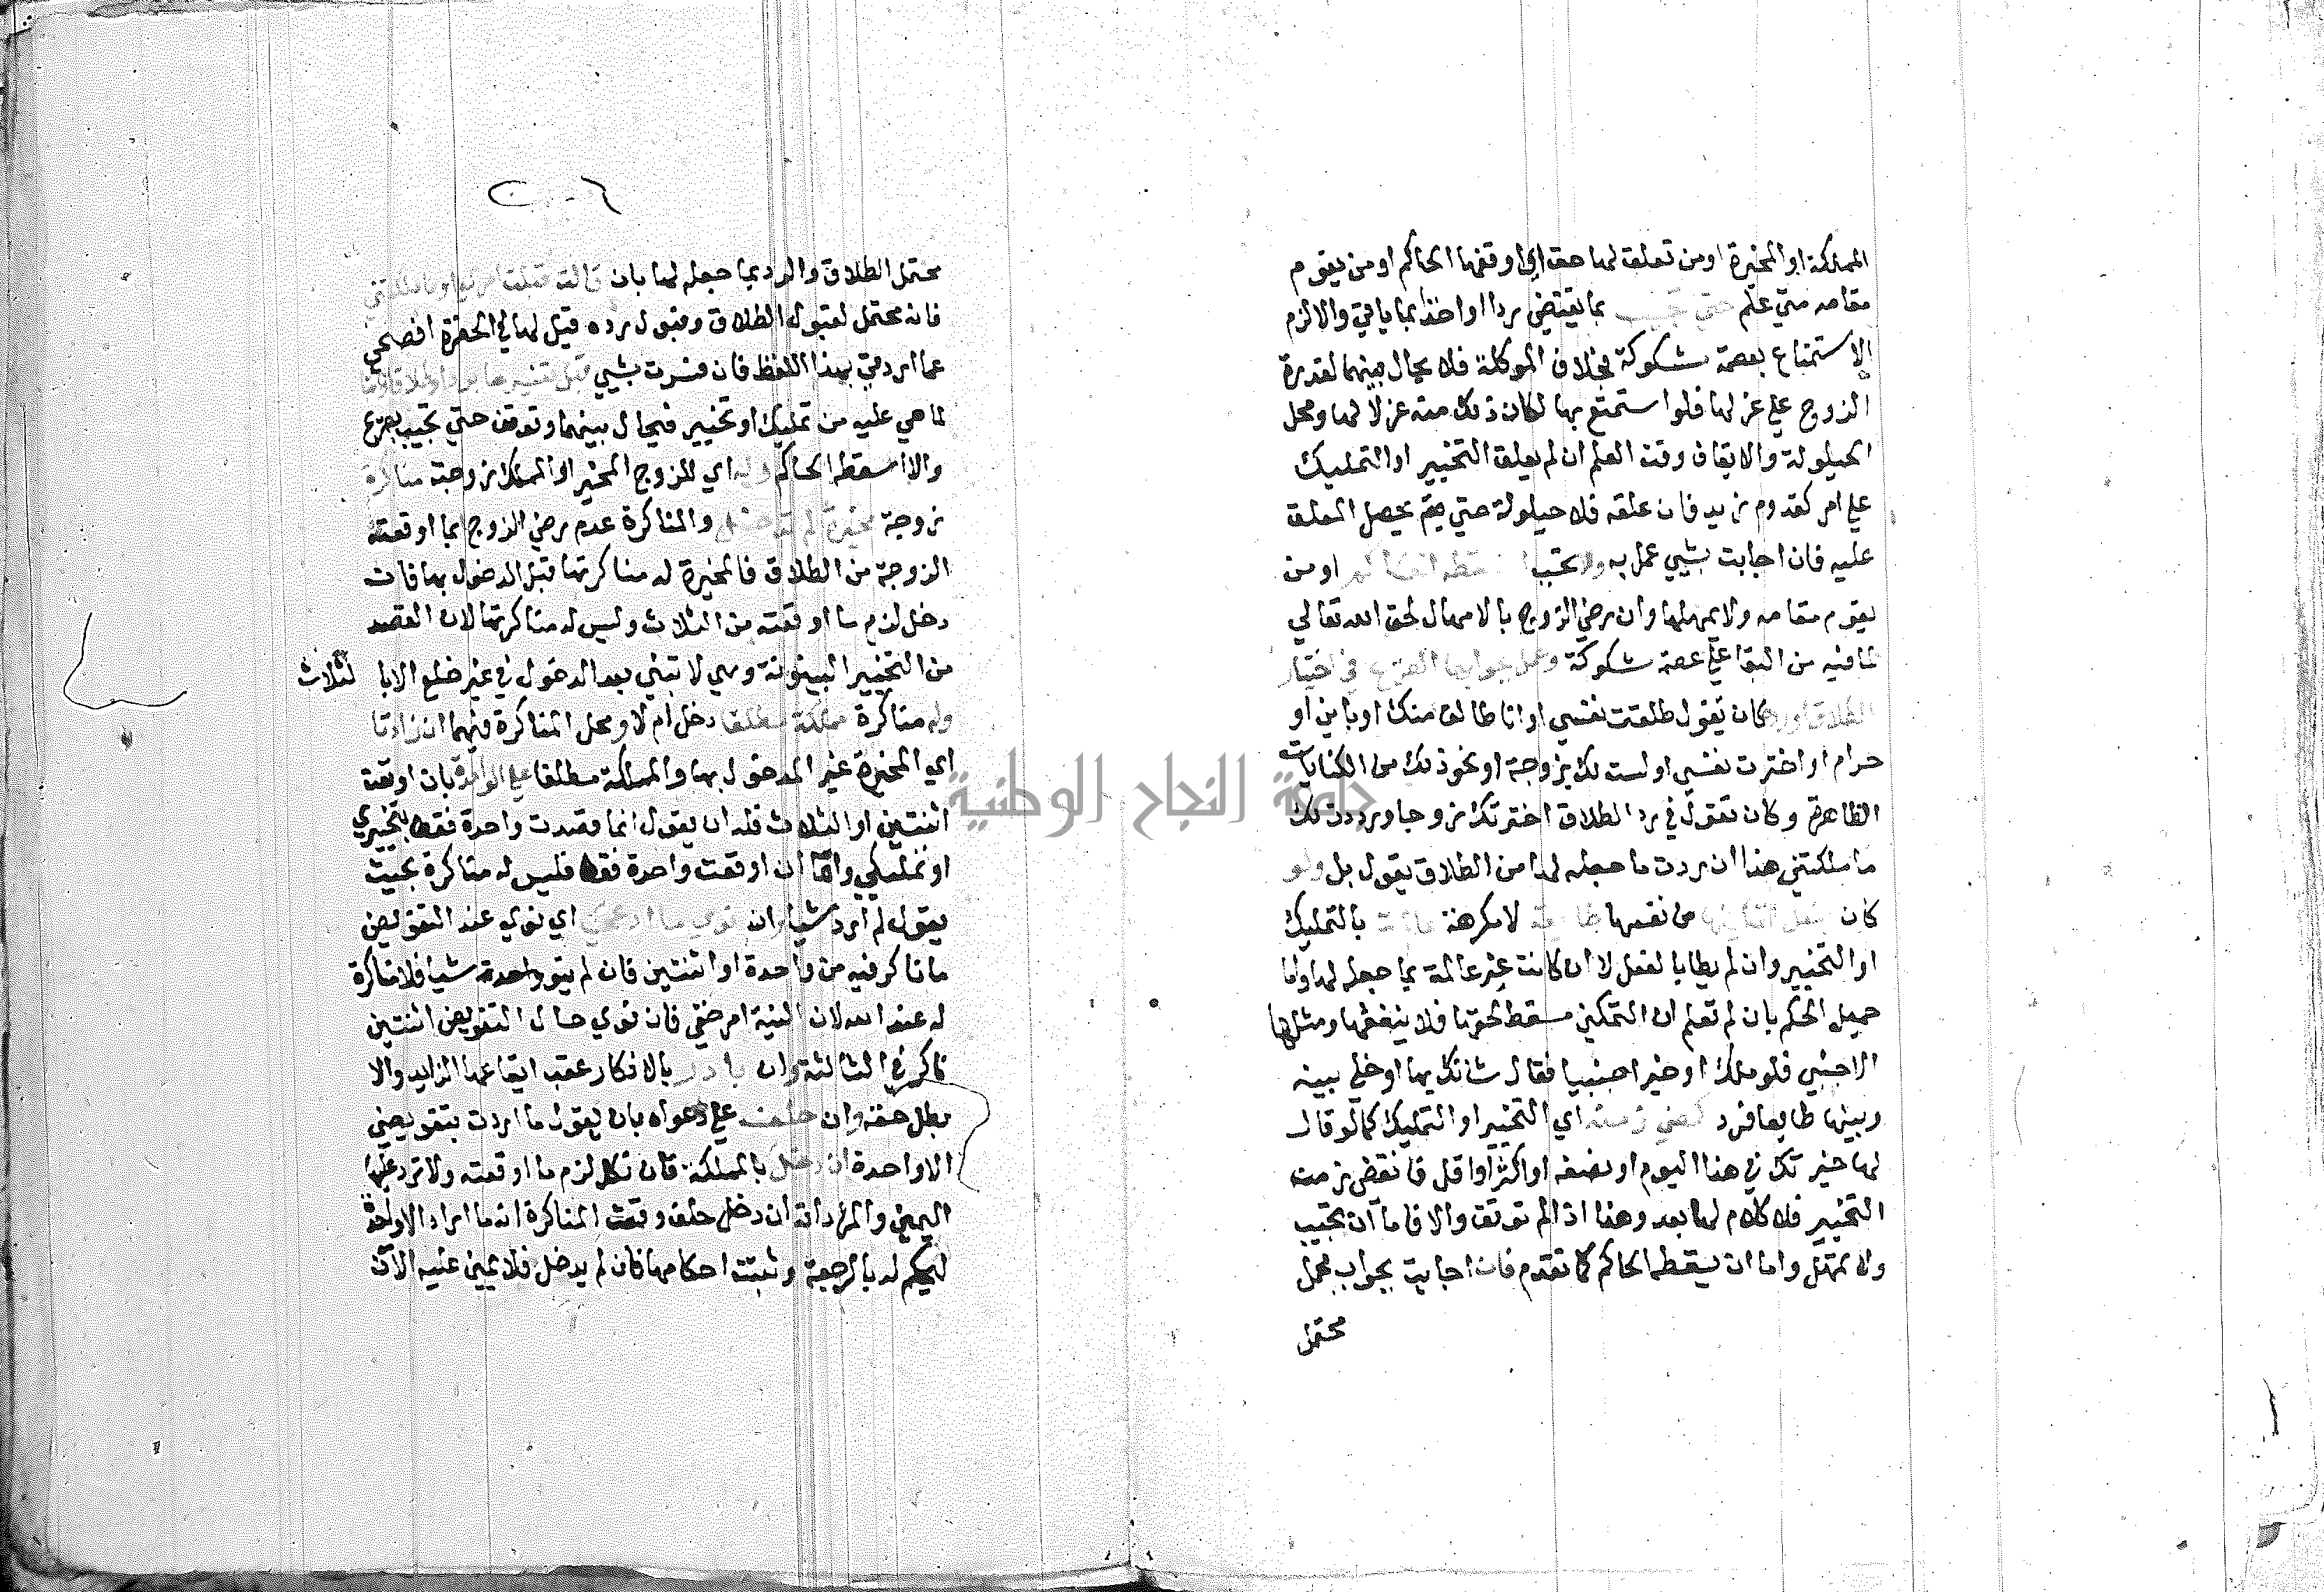 المملكة او المخيرة او من تعلق لها حق اي اوقفها الحاكم او من يقوم
مقامه متي علم حتي تجيب بما يقتضي ردا او اخذا بما ياتي والا لزم
الاستمتاع بعصمة مشكوكة بخلاف الموكلة فلا يحال بينهما لقدرة
الزوج علي عزلها فلو استمتع بها لكان ذلك منه عزلا لها ومحل
الحيلولة والايقاف وقت العلم ان لم يعلق التخيير او التمليك
علي امر كقدوم زيد فان علقه فلا حيلولة حتي يحصل المعلق
عليه فان اجابت بشيي عمل به والا تجب اسقطه الحاكم او من
يقوم مقامه ولا يمهلها وان رضي الزوج بالامهال لحق الله تعالي
لما فيه من البقا علي عصمة مشكوكة وعمل بجوابها الصريح في اختيار
الطلاق ورده كان تقول طلقت نفسي او انا طالق منك او باين او
حرام او اخترت نفسي او لست لك بزوجة او نحو ذلك من الكنايات
الظاهرة وكان تقول في رد الطلاق اخترتك زوجا ورددت لك
ما ملكتني هذا ان ردت ما جعله لها من الطلاق بقول بل ولو
كان بفعل كتمكينها من نفسها طايعة لا مكرهة عالمة بالتمليك
او التخيير وان لم يطا بالفعل لا ان كانت غير عالمة بما جعله لها واما
جهل الحكم بان لم تعلم ان التمكين مسقط لحقها فلا ينفعها ومثلها
الاجنبي فلو ملك او خير اجنبيا فقال شانك بها او خلي بينه
وبينها طايعا فرد كمضي زمنه اي التخيير او التمليك كما لو قال
لها خيرتك في هذا اليوم او نصفه او اكثر او اقل فانقضي زمنه
التخيير فلا كلام لها بعد وهذا اذا لم توقف والا فاما ان تجيب
ولا تمهل واما ان يسقطه الحاكم كما تقدم فان اجابت بجواب مجمل
محتمل
٢٠٦
محتمل الطلاق والرد بما جعله لها بان قالت قبلت امري او ما ملكتني
فانه محتمل لقبول الطلاق وقبول رده قيل لها في الحضرة افصحي
عما اردتي بهذا اللفظ فان فسرت بشيي قبل تفسيرها برد او طلاق او بقا
لما هي عليه من تمليك او تخيير فيحال بينهما وتوقف حتي تجيب بصريح
والا اسقطه الحاكم وله اي للزوج المخير او المملك زوجته مناكرة
زوجة مخيرة لم تدخل والمناكرة عدم رضي الزوج بما اوقعته
الزوجة من الطلاق فالمخيرة له مناكرتها قبل الدخول بها فان
دخل لزم ما اوقعته من الثلاث وليس له مناكرتها لان القصد
من التخيير البينونة وهي لا تبني بعد الدخول في غير خلع الا بالثلاث
وله مناكرة مملكة مطلقا دخل ام لا ومحل المناكرة فيهما ان زادتا
اي المخيرة غير المدخول بها والمملكة مطلقا علي الواحدة بان اوقعت
اثنتين او الثلاث فله ان يقول انما قصدت واحدة فقط بتخييري
او تمليكي واما ان اوقعت واحدة فقط فليس له مناكرة بحيث
يقول لم ارد شيا وان نوي ما ادعي اي نوي عند التفويض
ما ناكر فيه من واحدة او اثنتين فان لم ينو واحدة شيا فلا مناكرة
له عند الله لان النية امر خفي فان نوي حال التفويض اثنتين
ناكر في الثالثة وان بادر بالانكار عقب ايقاعها الزايد والا
بطل حقه وان حلف علي دعواه بان يقول ما اردت بتفويضي
الا واحدة ان دخل بالمملكة فان نكل لزم ما اوقعته ولا ترد عليها
اليمين والمراد انه ان دخل حلف وقت المناكرة انه ما اراد الا واحدة
ليحكم له بالرجعة وتثبت احكامها فان لم يدخل فلا يمين عليه الان